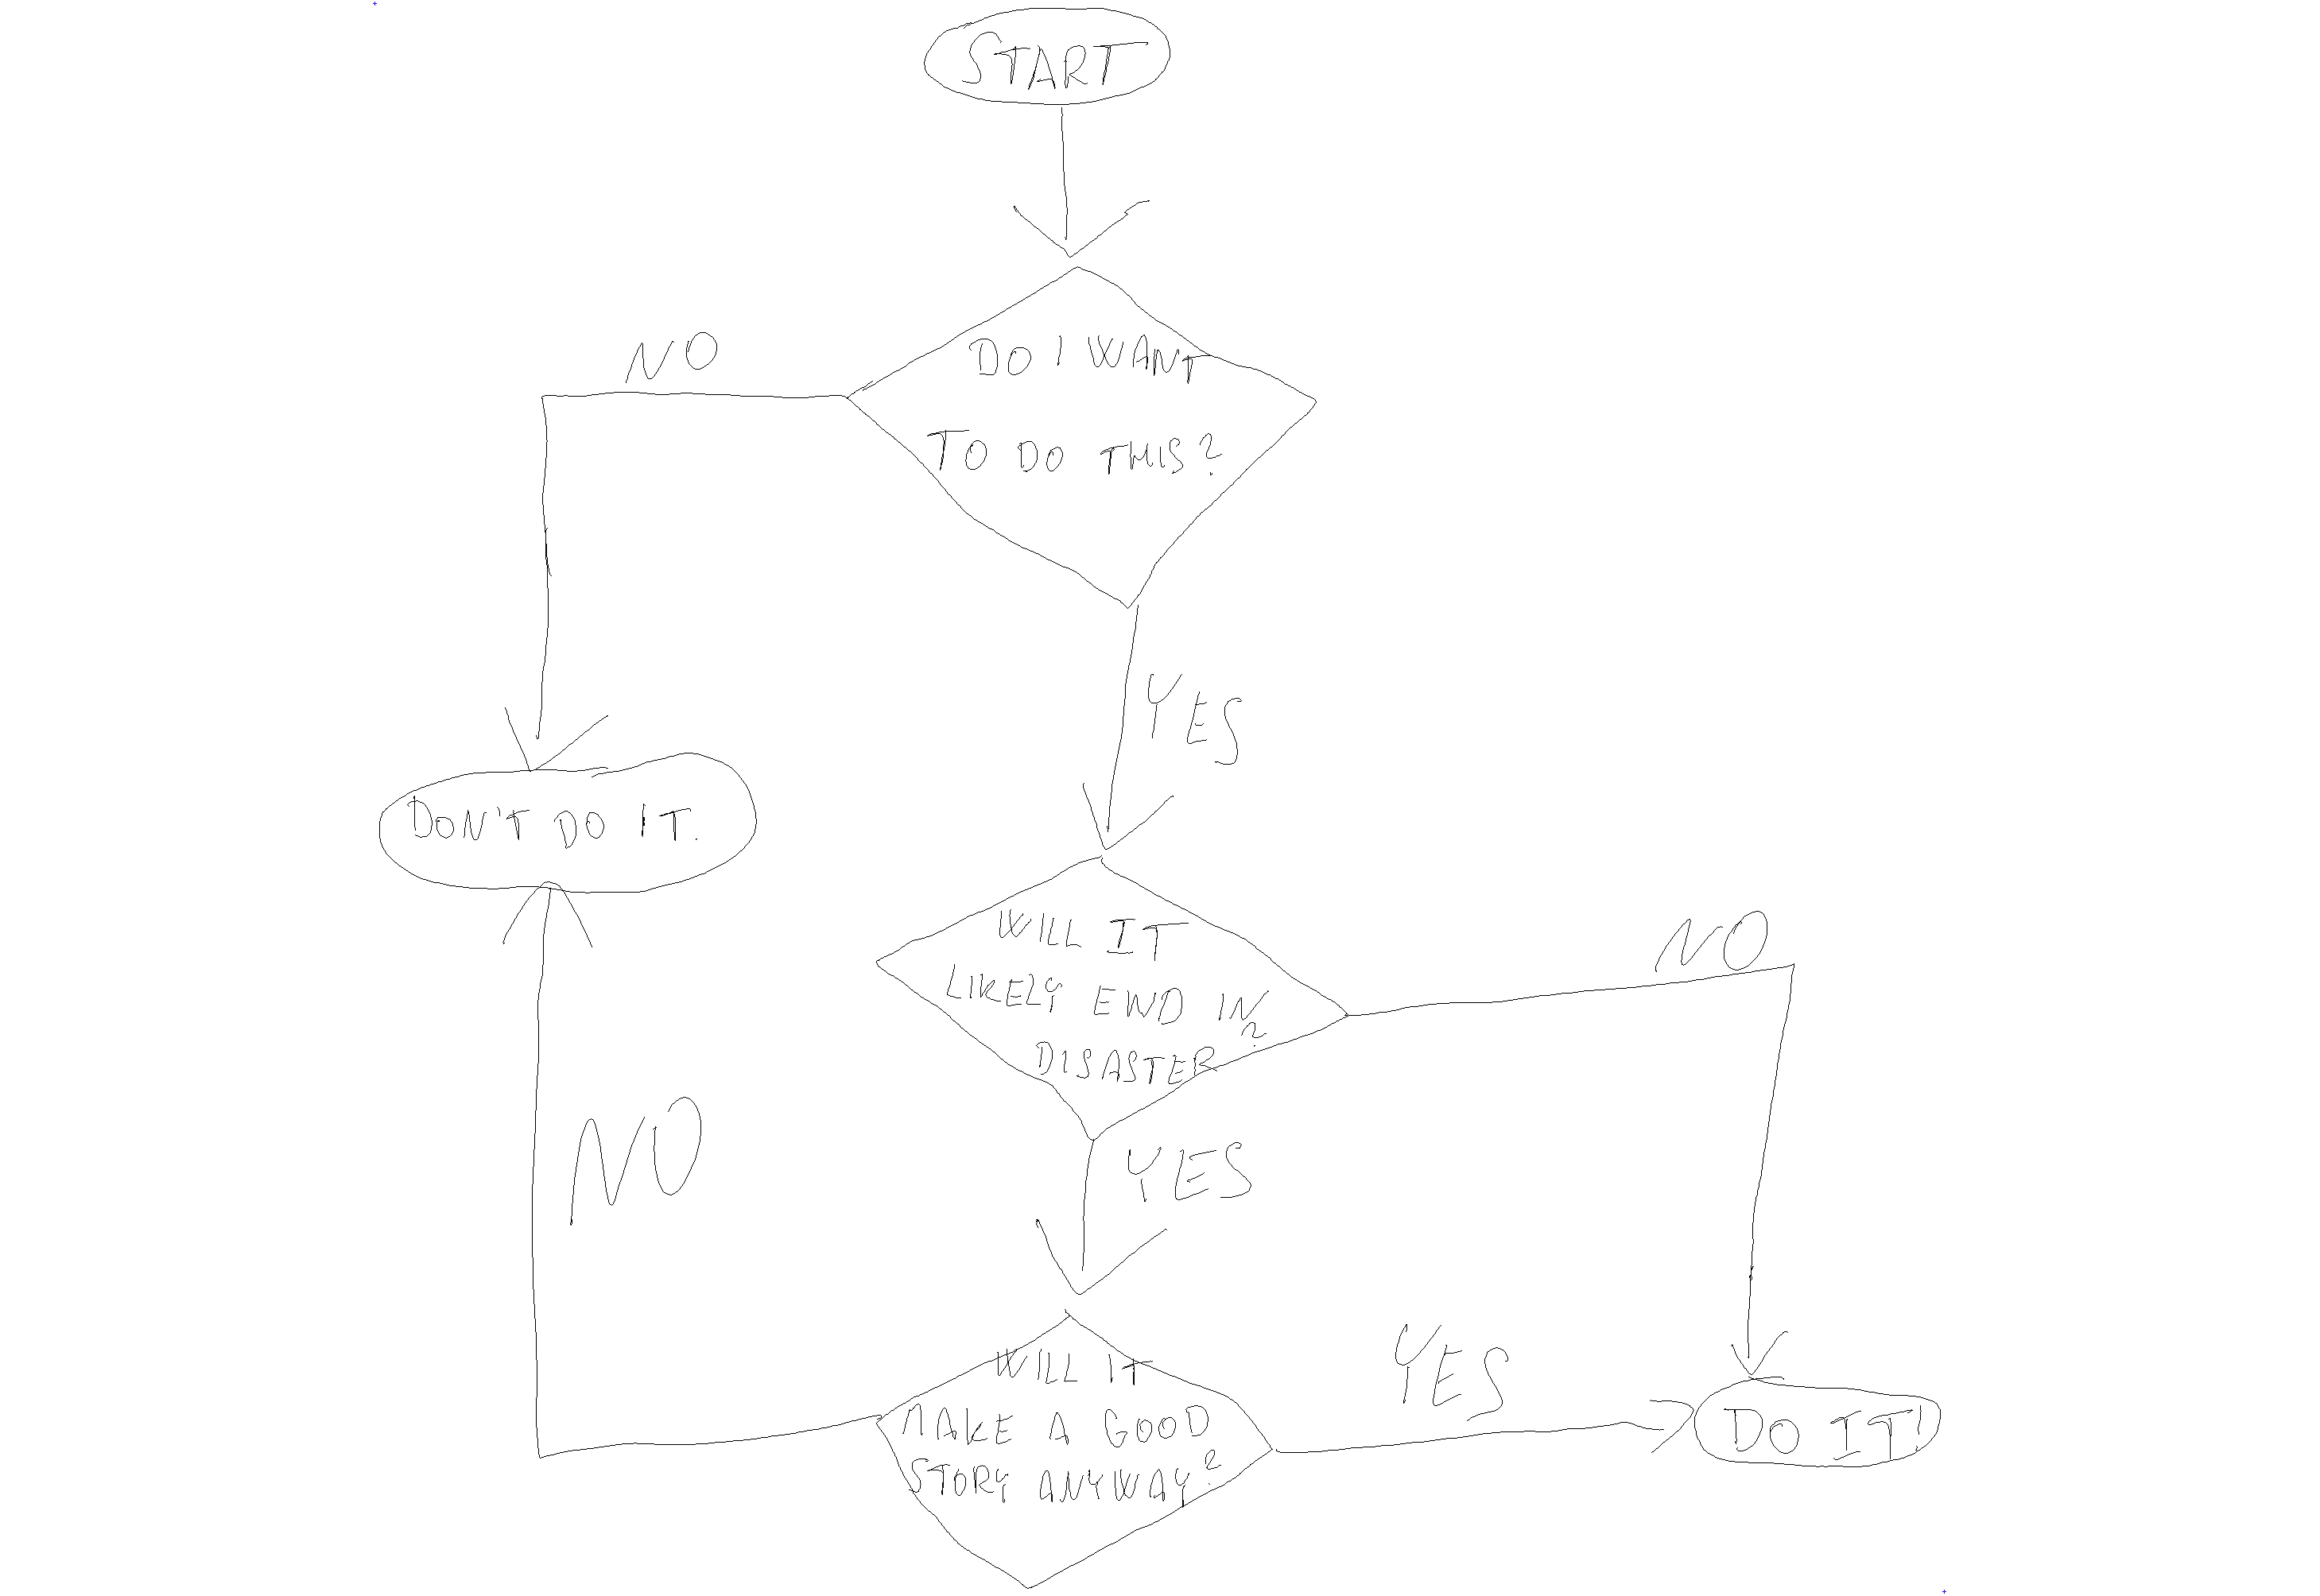 START
NO
DO I WANT
TO DO THIS?
YES
DON'T DO IT.
WILL IT
LIKELY END IN
DISASTER?
NO
YES
NO
WILL IT
MAKE A GOOD
STORY ANYWAY?
YES
DO IT!